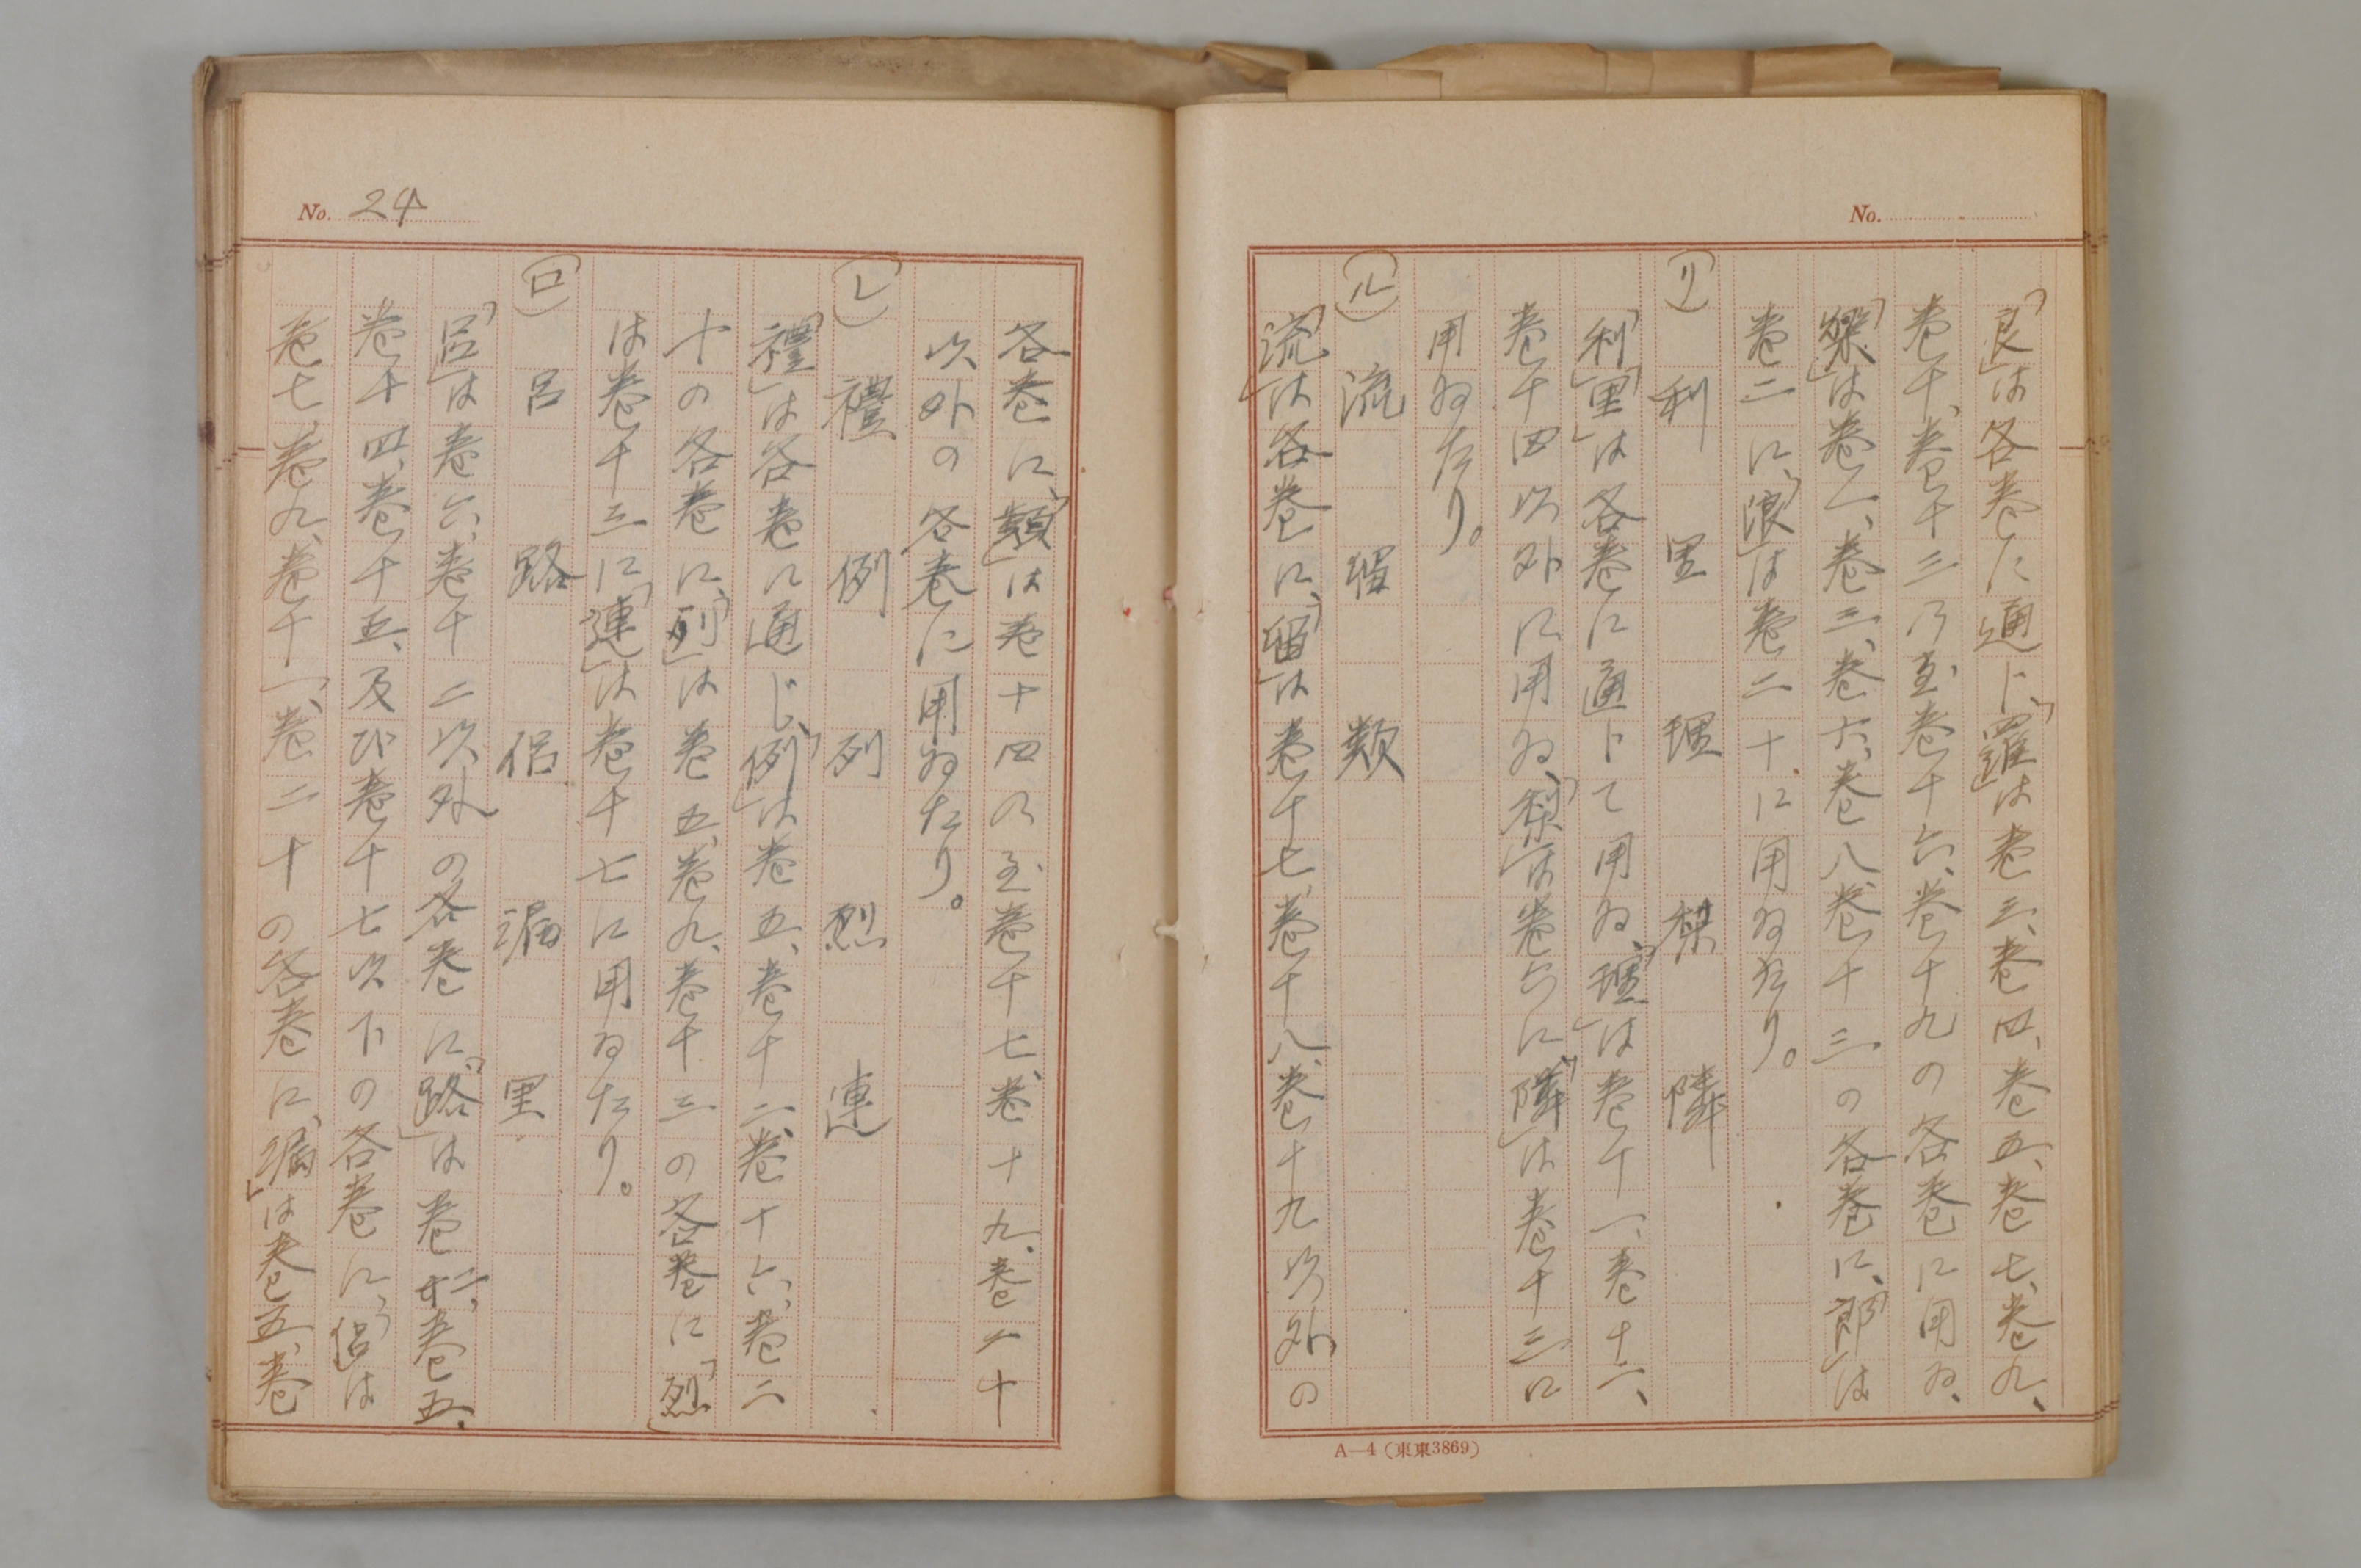 No.
「良」は各巻に通じ、「羅」は巻三、巻四、巻五、巻七、巻九、
巻十、巻十三乃至巻十六、巻十九の各巻に用ゐ、
「樂」は巻一、巻三、巻六、巻八、巻十三の各巻に、「郎」は
巻二に、「浪」は巻二十に用ゐたり。
(リ) 利 里 理 梨 隣
「利」「里」は各巻に通じて用ゐ、「理」は巻十一、巻十二、
巻十四以外に用ゐ、「梨」は巻六に「隣」は巻十三に
用ゐたり。
(ル) 流 留 類
「流」は各巻に、「留」は巻十七、巻十八、巻十九以外の
A—4(東東3869)
No. 24
各巻に、「類」は巻十四乃至巻十七、巻十九、巻二十
以外の各巻に用ゐたり。
(レ) 禮 例 列 烈 連
「禮」は各巻に通じ、「例」は巻五、巻十二、巻十六、巻二
十の各巻に、「列」は巻五、巻九、巻十三の各巻に「烈」
は巻十三に、「連」は巻十七に用ゐたり。
(ロ) 呂 路 侶 漏 里
「呂」は巻六、巻十二以外の各巻に、「路」は巻二、巻五、
巻十四、巻十五、及び巻十七以下の各巻に、「侶」は
巻七、巻九、巻十一、巻二十の各巻に、「漏」は巻五、巻